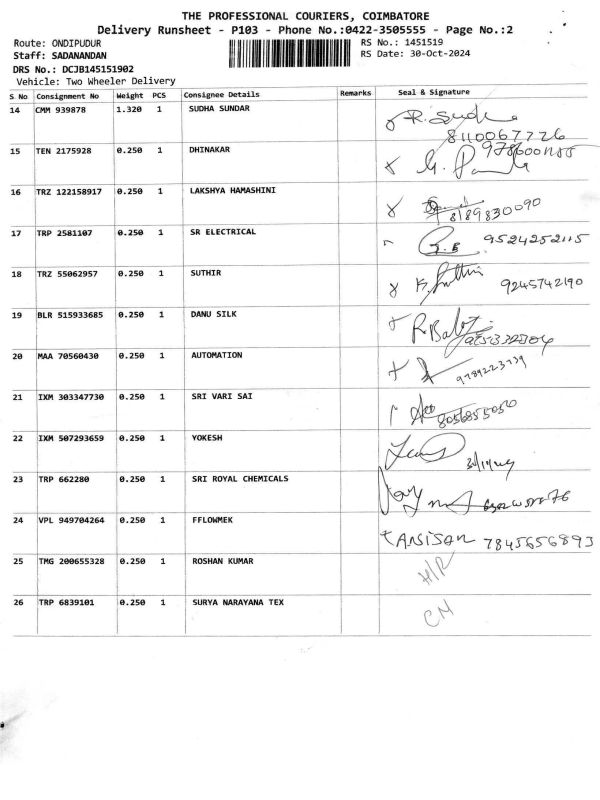 THE PROFESSIONAL COURIERS, COIMBATORE
Delivery Runsheet - P103 - Phone No.:0422-3505555 - Page No.:2
Route: ONDIPUDUR
RS No.: 1451519
Staff: SADANANDAN
RS Date: 30-Oct-2024
DRS No.: DCJB145151902
Vehicle: Two Wheeler Delivery
S No Consignment No Weight PCS Consignee Details Remarks Seal & Signature
14 CMM 939878 1.320 1 SUDHA SUNDAR R. Sudha
8110067726
15 TEN 2175928 0.250 1 DHINAKAR
16 TRZ 122158917 0.250 1 LAKSHYA HAMASHINI 8189830090
17 TRP 2581107 0.250 1 SR ELECTRICAL 9524252115
18 TRZ 55062957 0.250 1 SUTHIR 9245742190
19 BLR 515933685 0.250 1 DANU SILK
20 MAA 70560430 0.250 1 AUTOMATION 9789223739
21 IXM 303347730 0.250 1 SRI VARI SAI 8056855050
22 IXM 507293659 0.250 1 YOKESH
23 TRP 662280 0.250 1 SRI ROYAL CHEMICALS
24 VPL 949704264 0.250 1 FFLOWMEK 7845656893
25 TMG 200655328 0.250 1 ROSHAN KUMAR H/R
26 TRP 6839101 0.250 1 SURYA NARAYANA TEX CN